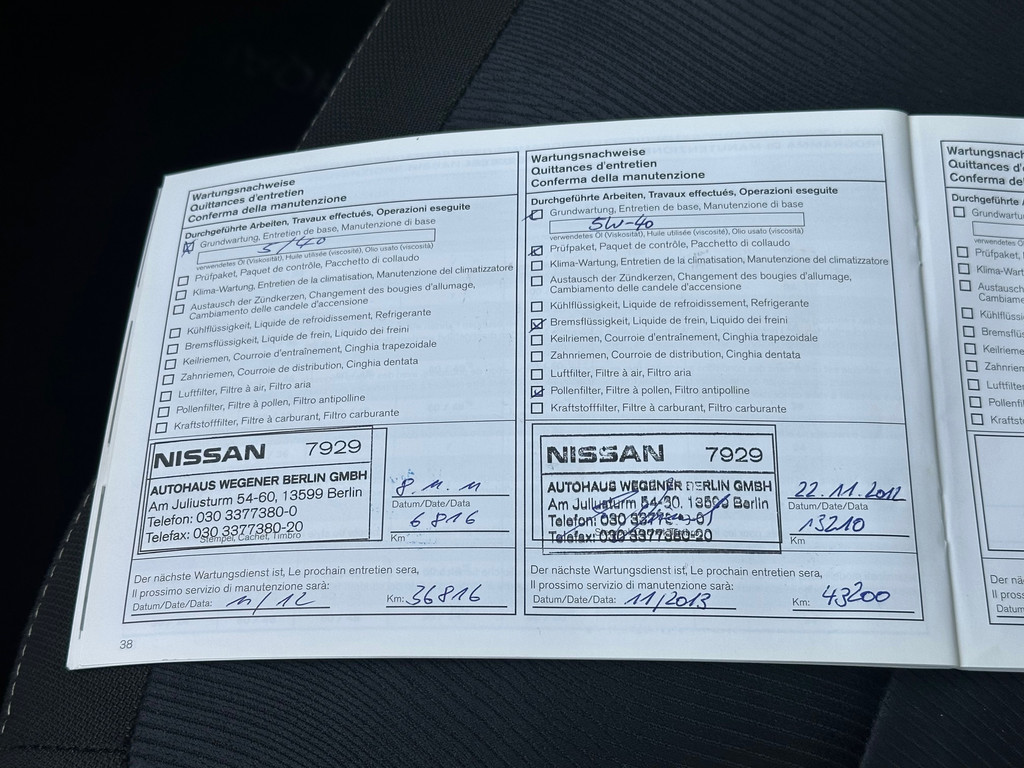 Wartungsnachweise
Quittances d'entretien
Conferma della manutenzione
Durchgeführte Arbeiten, Travaux effectués, Operazioni eseguite
Grundwartung, Entretien de base, Manutenzione di base
5/40
verwendetes Öl (Viskosität), Huile utilisée (viscosité), Olio usato (viscosità)
Prüfpaket, Paquet de contrôle, Pacchetto di collaudo
Klima-Wartung, Entretien de la climatisation, Manutenzione del climatizzatore
Austausch der Zündkerzen, Changement des bougies d'allumage,
Cambiamento delle candele d'accensione
Kühlflüssigkeit, Liquide de refroidissement, Refrigerante
Bremsflüssigkeit, Liquide de frein, Liquido dei freini
Keilriemen, Courroie d'entraînement, Cinghia trapezoidale
Zahnriemen, Courroie de distribution, Cinghia dentata
Luftfilter, Filtre à air, Filtro aria
Pollenfilter, Filtre à pollen, Filtro antipolline
Kraftstofffilter, Filtre à carburant, Filtro carburante
NISSAN 7929
AUTOHAUS WEGENER BERLIN GMBH
Am Juliusturm 54-60, 13599 Berlin
Telefon: 030 3377380-0
Telefax: 030 3377380-20
Stempel, Cachet, Timbro
8.11.11
Datum/Date/Data
6816
Km
Der nächste Wartungsdienst ist, Le prochain entretien sera,
Il prossimo servizio di manutenzione sarà:
Datum/Date/Data: 11/12 Km: 36816
38
Wartungsnachweise
Quittances d'entretien
Conferma della manutenzione
Durchgeführte Arbeiten, Travaux effectués, Operazioni eseguite
Grundwartung, Entretien de base, Manutenzione di base
5W-40
verwendetes Öl (Viskosität), Huile utilisée (viscosité), Olio usato (viscosità)
Prüfpaket, Paquet de contrôle, Pacchetto di collaudo
Klima-Wartung, Entretien de la climatisation, Manutenzione del climatizzatore
Austausch der Zündkerzen, Changement des bougies d'allumage,
Cambiamento delle candele d'accensione
Kühlflüssigkeit, Liquide de refroidissement, Refrigerante
Bremsflüssigkeit, Liquide de frein, Liquido dei freini
Keilriemen, Courroie d'entraînement, Cinghia trapezoidale
Zahnriemen, Courroie de distribution, Cinghia dentata
Luftfilter, Filtre à air, Filtro aria
Pollenfilter, Filtre à pollen, Filtro antipolline
Kraftstofffilter, Filtre à carburant, Filtro carburante
NISSAN 7929
AUTOHAUS WEGENER BERLIN GMBH
Am Juliusturm Berlin
Telefon: 030
Telefax: 030 3377380-20
22.11.2012
Datum/Date/Data
13210
Km
Der nächste Wartungsdienst ist, Le prochain entretien sera,
Il prossimo servizio di manutenzione sarà:
Datum/Date/Data: 11/2013 Km: 43200
Wartungsnach
Quittances d'e
Conferma de
Durchgeführte
Grundwartu
verwendetes
Prüfpaket,
Klima-Wart
Austausch
Cambiame
Kühlflüssi
Bremsflüs
Keilrieme
Zahnriem
Luftfilter
Pollenfil
Kraftst
Der nä
Il pross
Datum